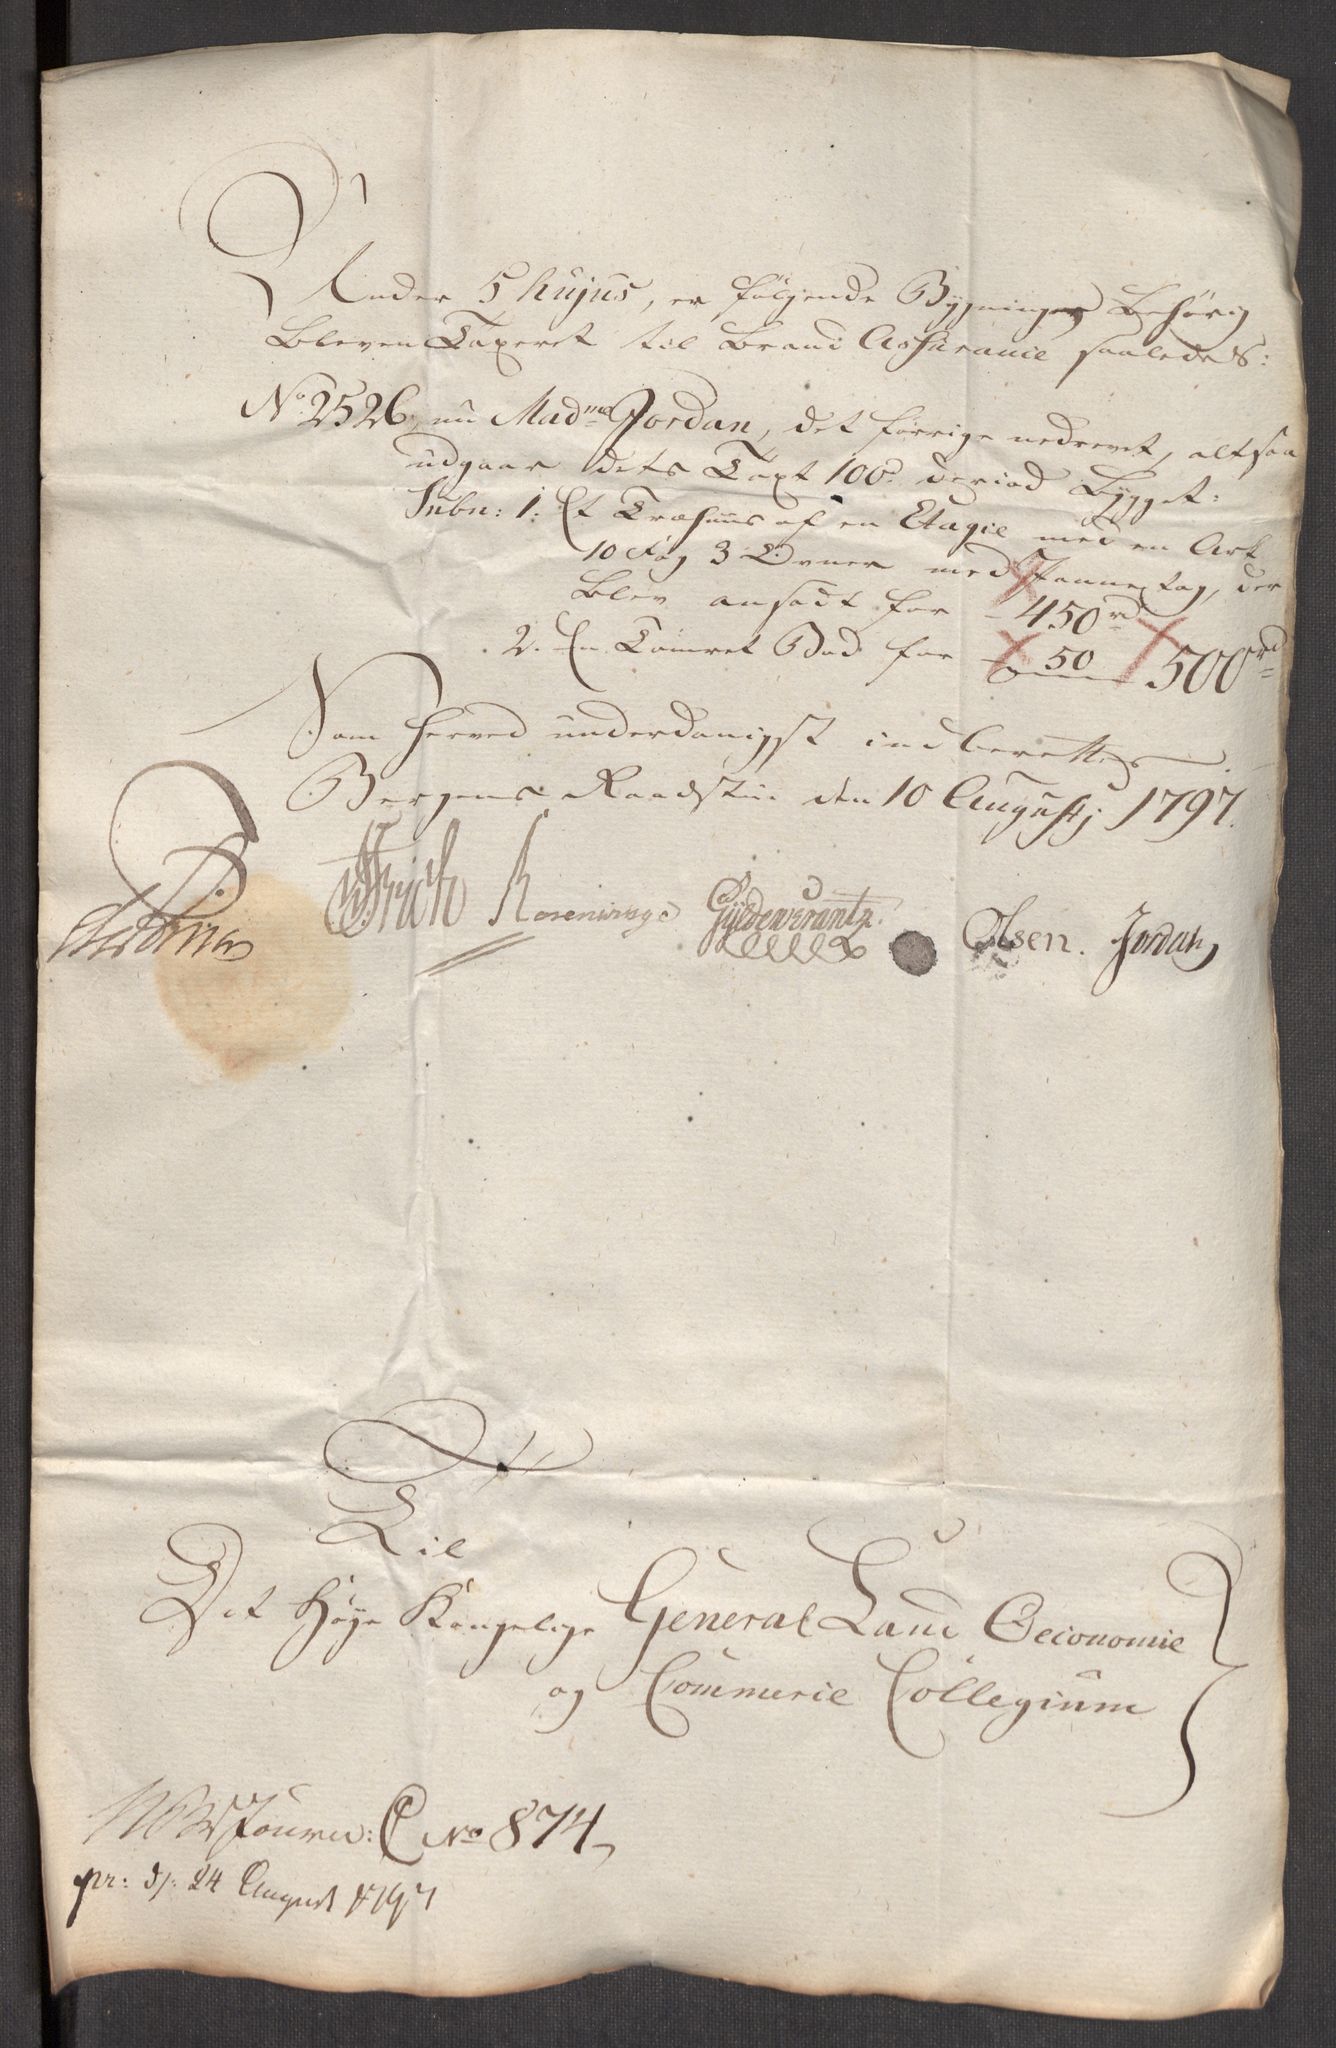 Under 5 hujus, er følgende Bygninger behørig
bleven Taxeret til Brand Assurance saaledes:
No 2526, nu Madme Jordan, det forrige nedrevet, altsaa
udgaar dets Taxt 100rd deriod bygget:
Litr: 1. Et Træhuus af en Etagie med en Ark
10 Fag 3 Ovner med Pannetag, der
blev ansadt for - 450rd
2. En Tømret Bod for - 50 500rd
Som herved underdanigst indberettes
Bergens Raadstue den 10 Augustj 1797.
Frich Rosenvinge Gyldenkrantz. Olsen. Jordan
Til
Det Høye Kongelige General Land Oeconomie
og Commerce Collegium
Journ: C No 874
pr: d: 24 August 1797